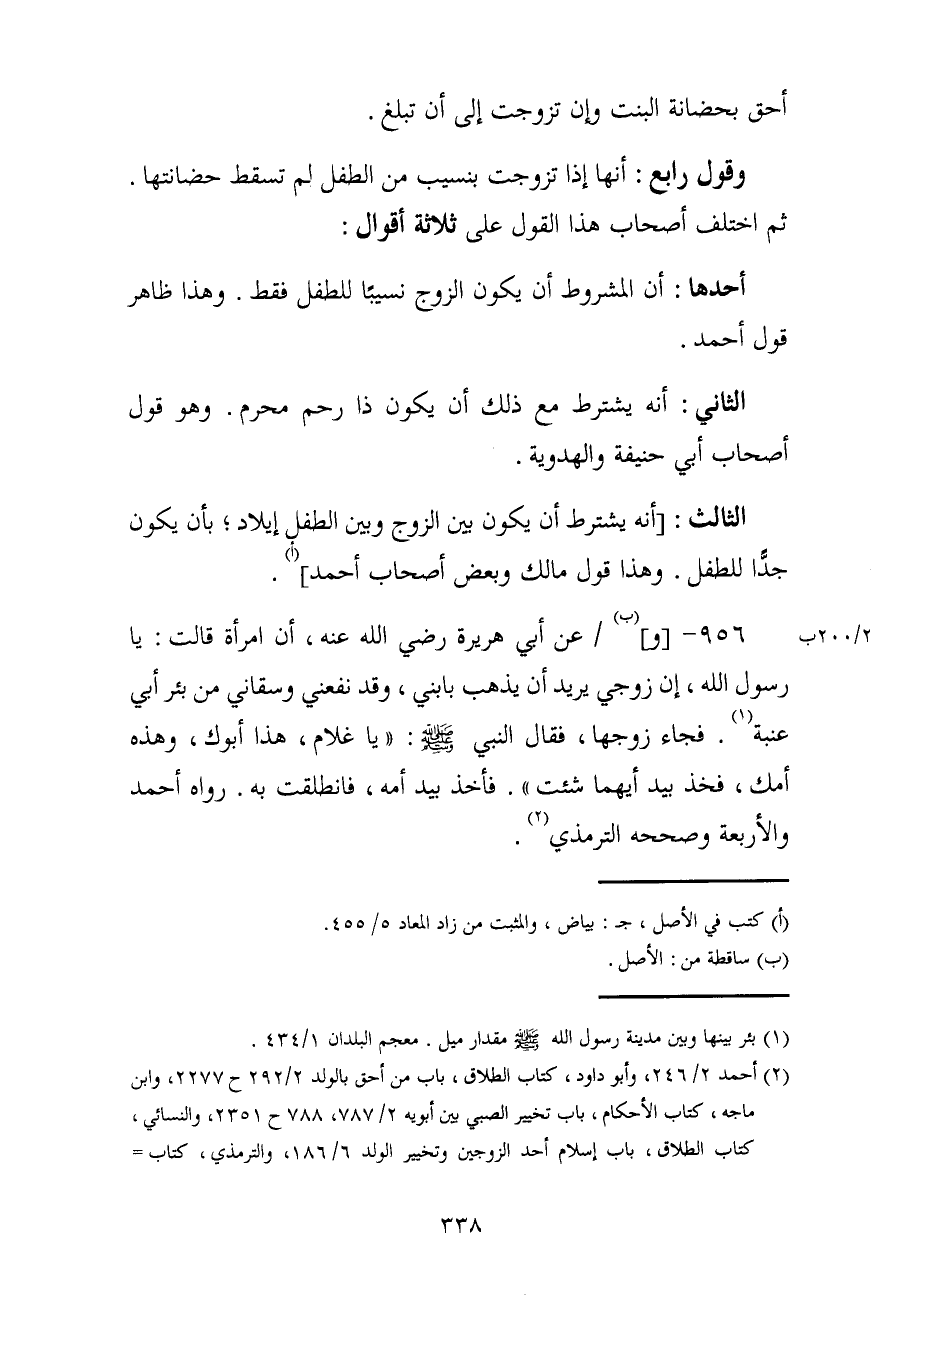 أحق بحضانة البنت وإن تزوجت إلى أن تبلغ .
وقول رابع : أنها إذا تزوجت بنسيب من الطفل لم تسقط حضانتها .
ثم اختلف أصحاب هذا القول على ثلاثة أقوال :
أحدها : أن المشروط أن يكون الزوج نسيبًا للطفل فقط . وهذا ظاهر
قول أحمد .
الثاني : أنه يشترط مع ذلك أن يكون ذا رحم محرم . وهو قول
أصحاب أبي حنيفة والهدوية .
الثالث : [أنه يشترط أن يكون بين الزوج وبين الطفل إيلاد ؛ بأن يكون
جدًّا للطفل . وهذا قول مالك وبعض أصحاب أحمد](أ) .
٩٥٦- [و](ب) / عن أبي هريرة رضي الله عنه ، أن امرأة قالت : يا ٢٠٠/٢ب
رسول الله ، إن زوجي يريد أن يذهب بابني ، وقد نفعني وسقاني من بئر أبي
عنبة(١) . فجاء زوجها ، فقال النبي ﷺ : « يا غلام ، هذا أبوك ، وهذه
أمك ، فخذ بيد أيهما شئت » . فأخذ بيد أمه ، فانطلقت به . رواه أحمد
والأربعة وصححه الترمذي(٢) .
(أ) كتب في الأصل ، جـ : بياض ، والمثبت من زاد المعاد ٥/ ٤٥٥.
(ب) ساقطة من : الأصل .
(١) بئر بينها وبين مدينة رسول الله ﷺ مقدار ميل . معجم البلدان ٤٣٤/١ .
(٢) أحمد ٢/ ٢٤٦، وأبو داود ، كتاب الطلاق ، باب من أحق بالولد ٢٩٢/٢ ح ٢٢٧٧، وابن
ماجه ، كتاب الأحكام ، باب تخيير الصبي بين أبويه ٢/ ٧٨٧، ٧٨٨ ح ٢٣٥١، والنسائي ،
كتاب الطلاق ، باب إسلام أحد الزوجين وتخيير الولد ٦/ ١٨٦، والترمذي ، كتاب =
٣٣٨